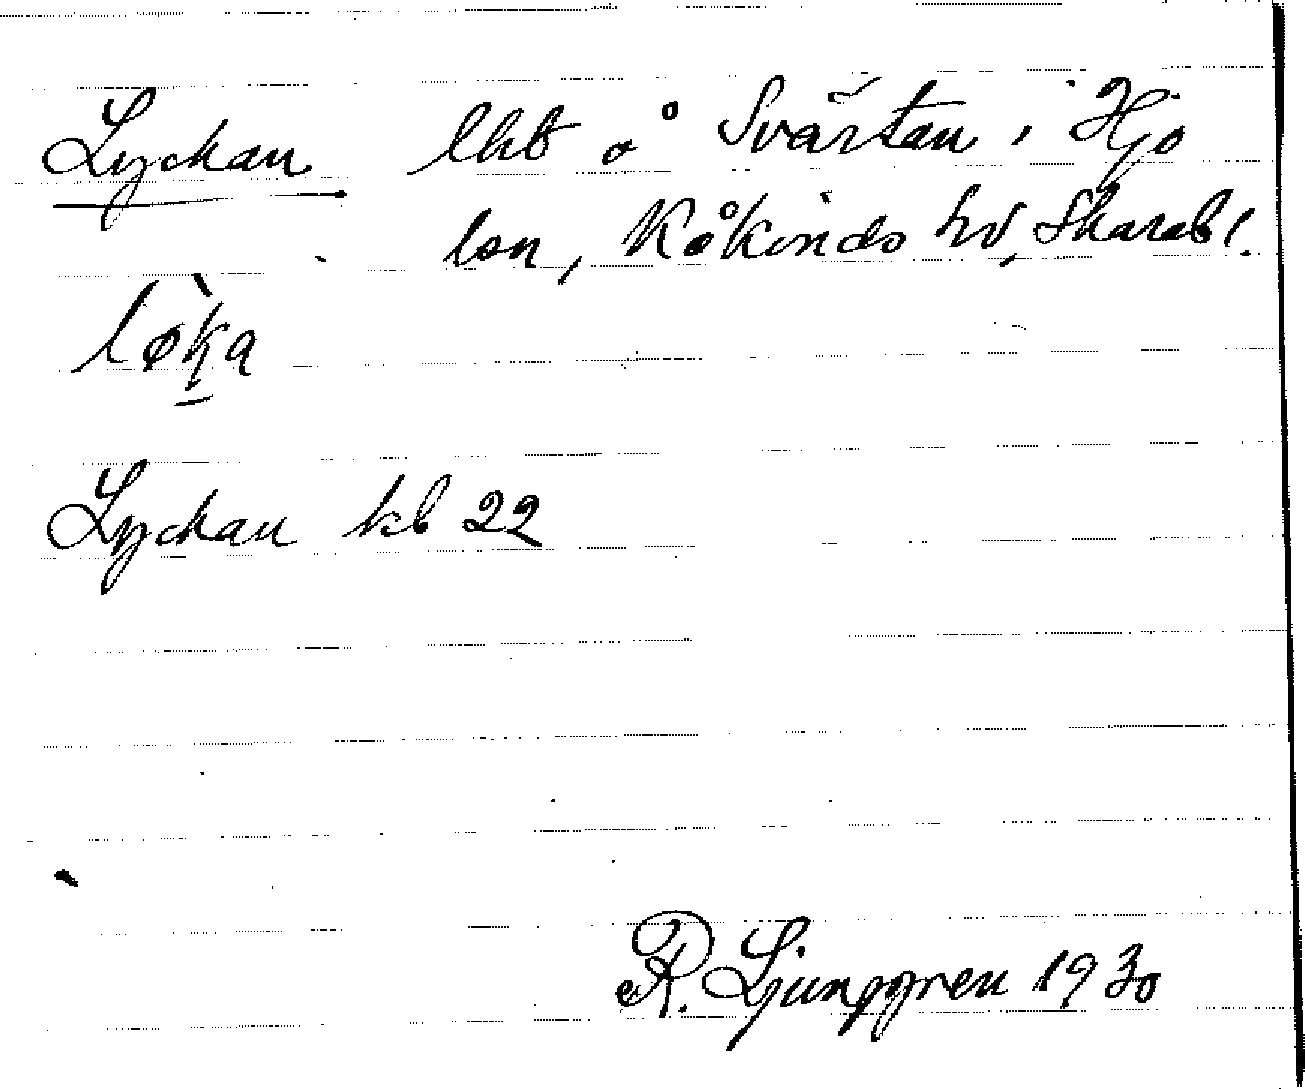 Lyckan lht å Svärtan i Hjo
lsn, Kåkinds hd, Skarabl.
lø̀ka
Lyckan kb 22
R. Ljunggren 1930